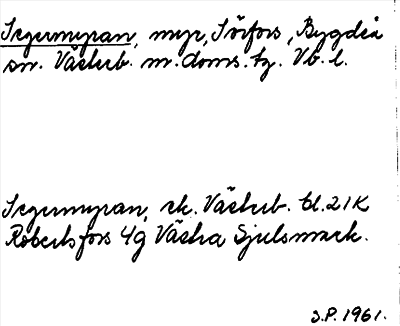 Segermyran, myr, Sörfors, Bygdeå
sn. Västerb. m. doms. tg. Vb. l.
Segermyran, ek. Västerb. bl. 21K
Robertsfors 4g Västra Sjulsmark.
S.P. 1961.